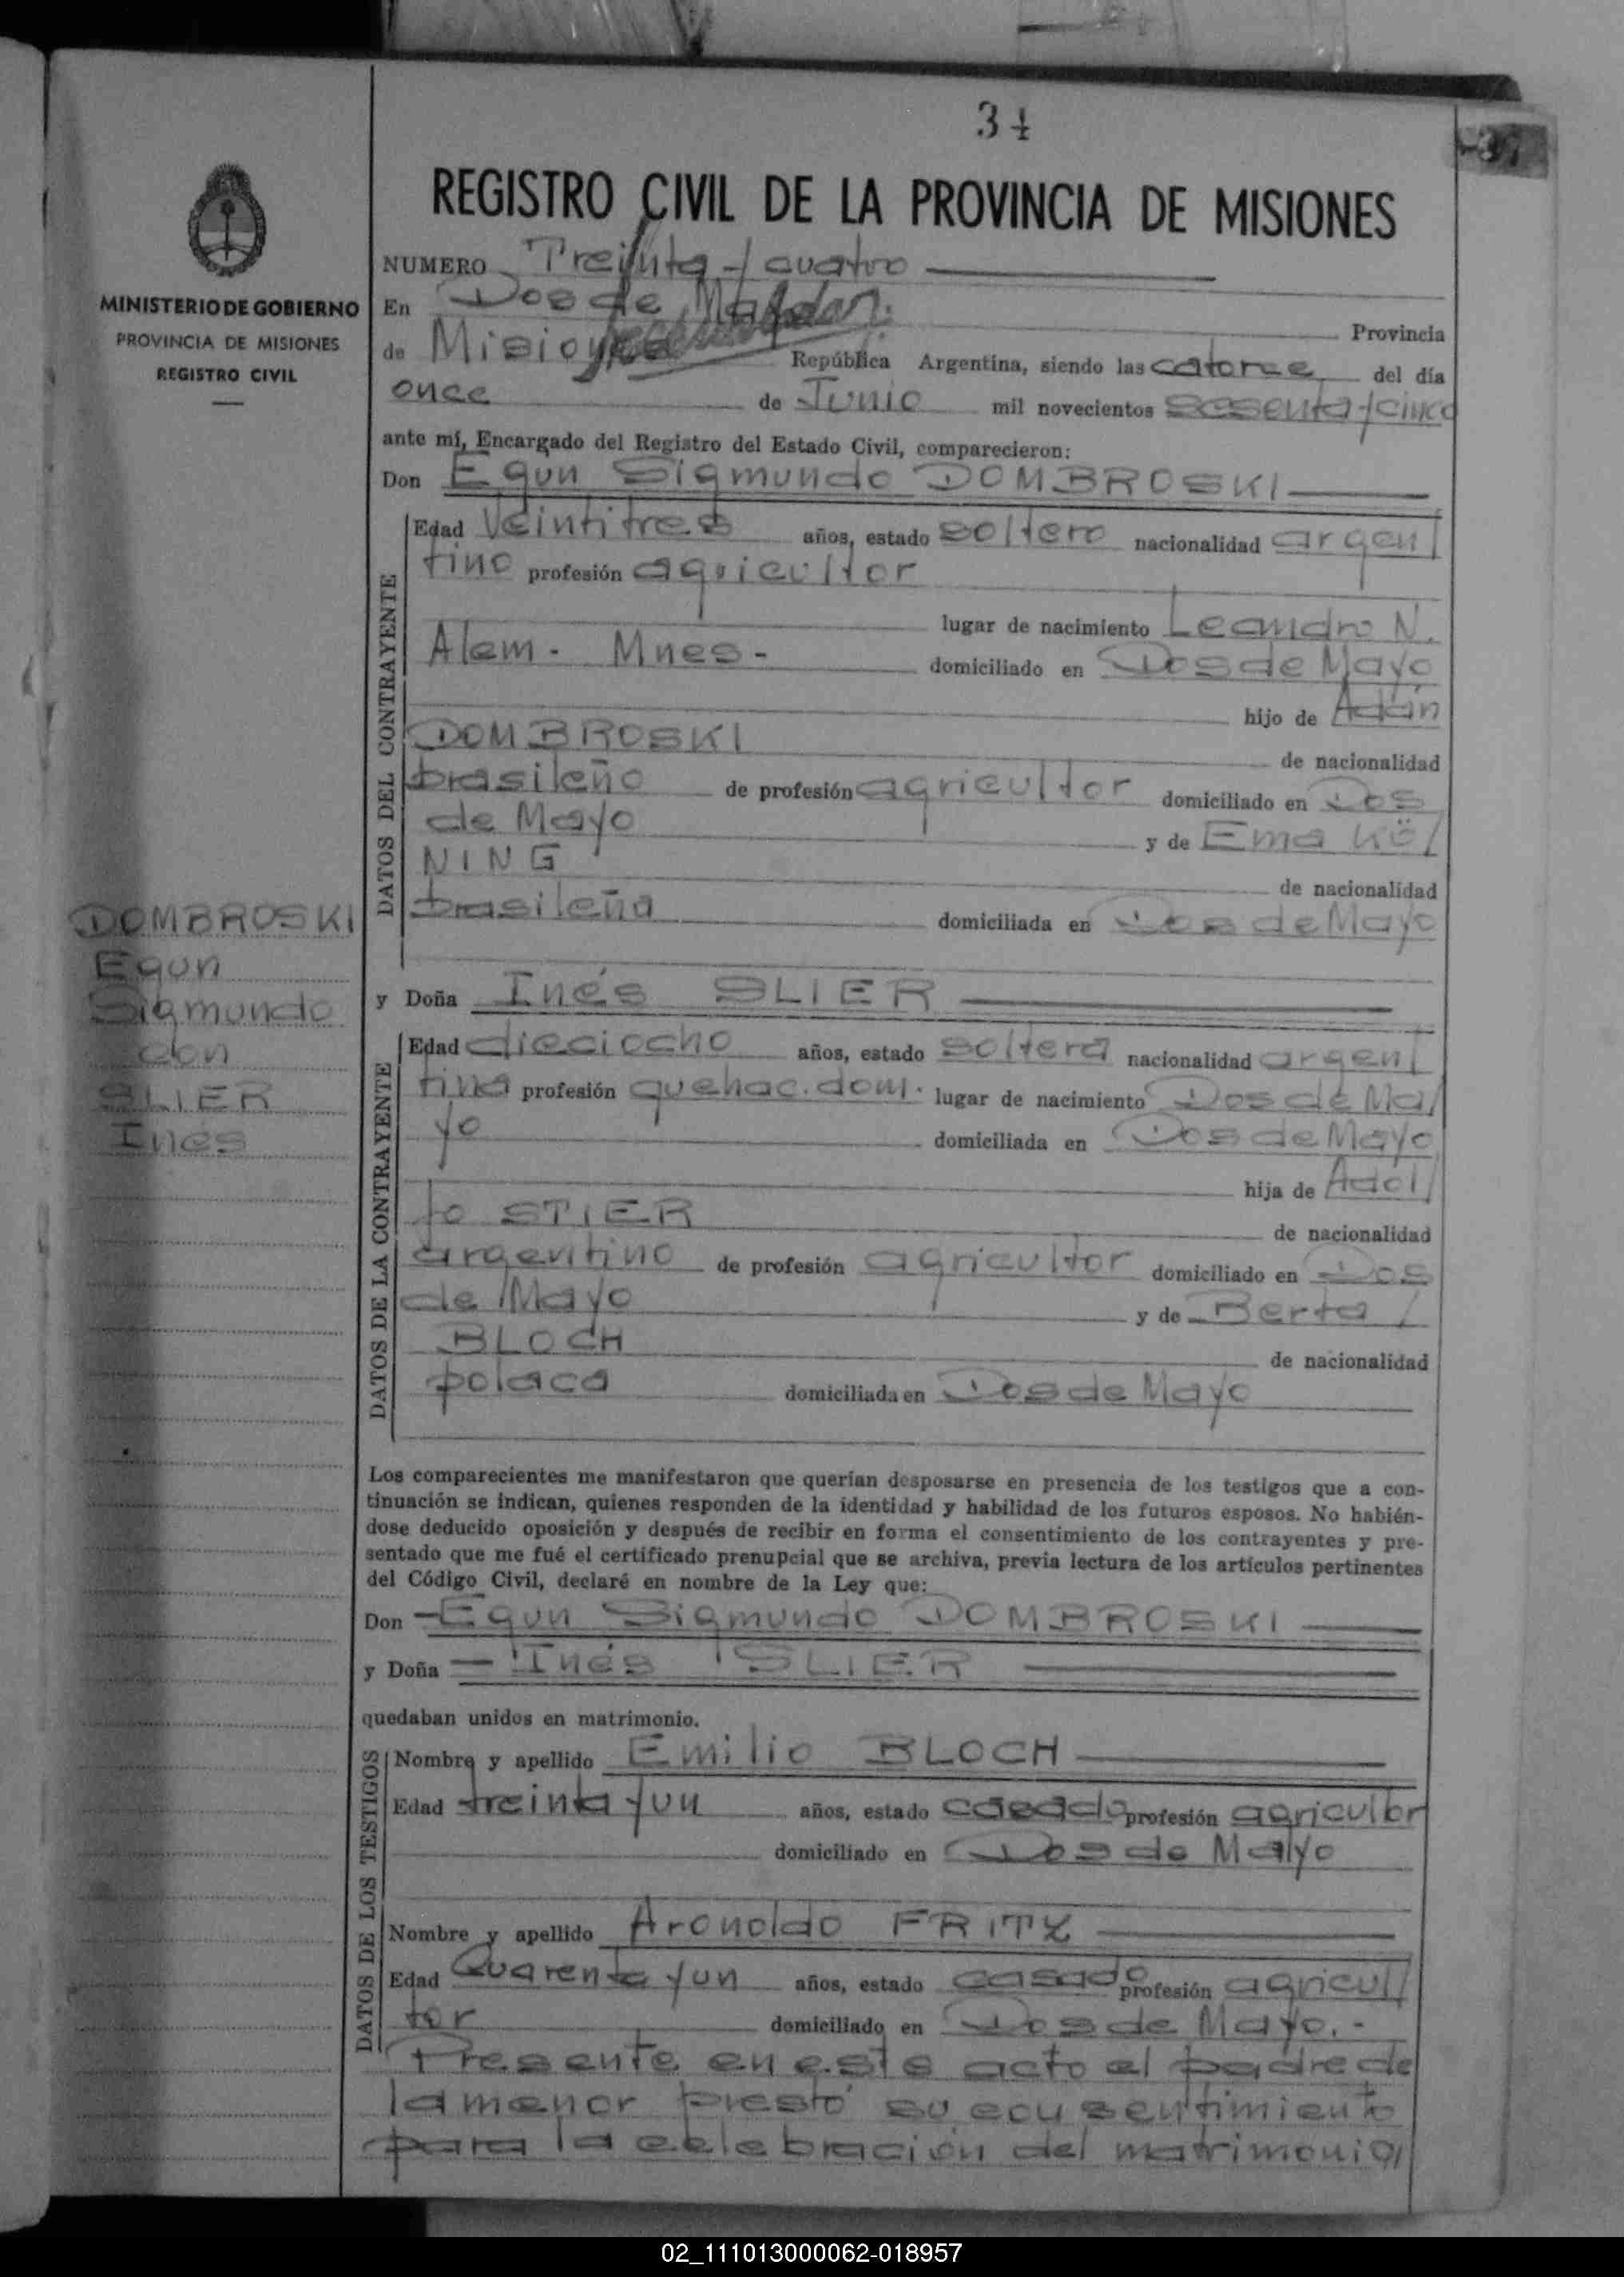 34
37
REGISTRO CIVIL DE LA PROVINCIA DE MISIONES
MINISTERIO DE GOBIERNO
PROVINCIA DE MISIONES
REGISTRO CIVIL
NUMERO Treinta y cuatro
En Dos de Mayo
Provincia
de Misiones República Argentina, siendo las catorce del día
once de Junio mil novecientos sesenta y cinco
ante mí, Encargado del Registro del Estado Civil, comparecieron:
Don Egun Sigmundo DOMBROSKI
DATOS DEL CONTRAYENTE
Edad Veintitres años, estado soltero nacionalidad argen/
tino profesión agricultor
lugar de nacimiento Leandro N.
Alem - Mnes - domiciliado en Dos de Mayo
hijo de Adán
DOMBROSKI
de nacionalidad
brasileño de profesión agricultor domiciliado en Dos
de Mayo y de Ema Kö/
NING
de nacionalidad
brasileña domiciliada en Dos de Mayo
DOMBROSKI
Egun
Sigmundo
con
SLIER
Inés
y Doña Inés SLIER
DATOS DE LA CONTRAYENTE
Edad dieciocho años, estado soltera nacionalidad argen/
tina profesión quehac. dom. lugar de nacimiento Dos de Ma/
yo domiciliada en Dos de Mayo
hija de Adol/
fo STIER
de nacionalidad
argentino de profesión agricultor domiciliado en Dos
de Mayo y de Berta /
BLOCH
de nacionalidad
polaca domiciliada en Dos de Mayo
Los comparecientes me manifestaron que querían desposarse en presencia de los testigos que a con-
tinuación se indican, quienes responden de la identidad y habilidad de los futuros esposos. No habién-
dose deducido oposición y después de recibir en forma el consentimiento de los contrayentes y pre-
sentado que me fué el certificado prenupcial que se archiva, previa lectura de los artículos pertinentes
del Código Civil, declaré en nombre de la Ley que:
Don Egun Sigmundo DOMBROSKI
y Doña Inés SLIER
quedaban unidos en matrimonio.
DATOS DE LOS TESTIGOS
Nombre y apellido Emilio BLOCH
Edad treinta y un años, estado casado profesión agricultor
domiciliado en Dos de Mayo
Nombre y apellido Aronoldo FRITZ
Edad Cuarenta y un años, estado casado profesión agricul/
tor domiciliado en Dos de Mayo.-
Presente en este acto el padre de
la menor prestó su consentimiento
para la celebración del matrimonio/
02_111013000062-018957